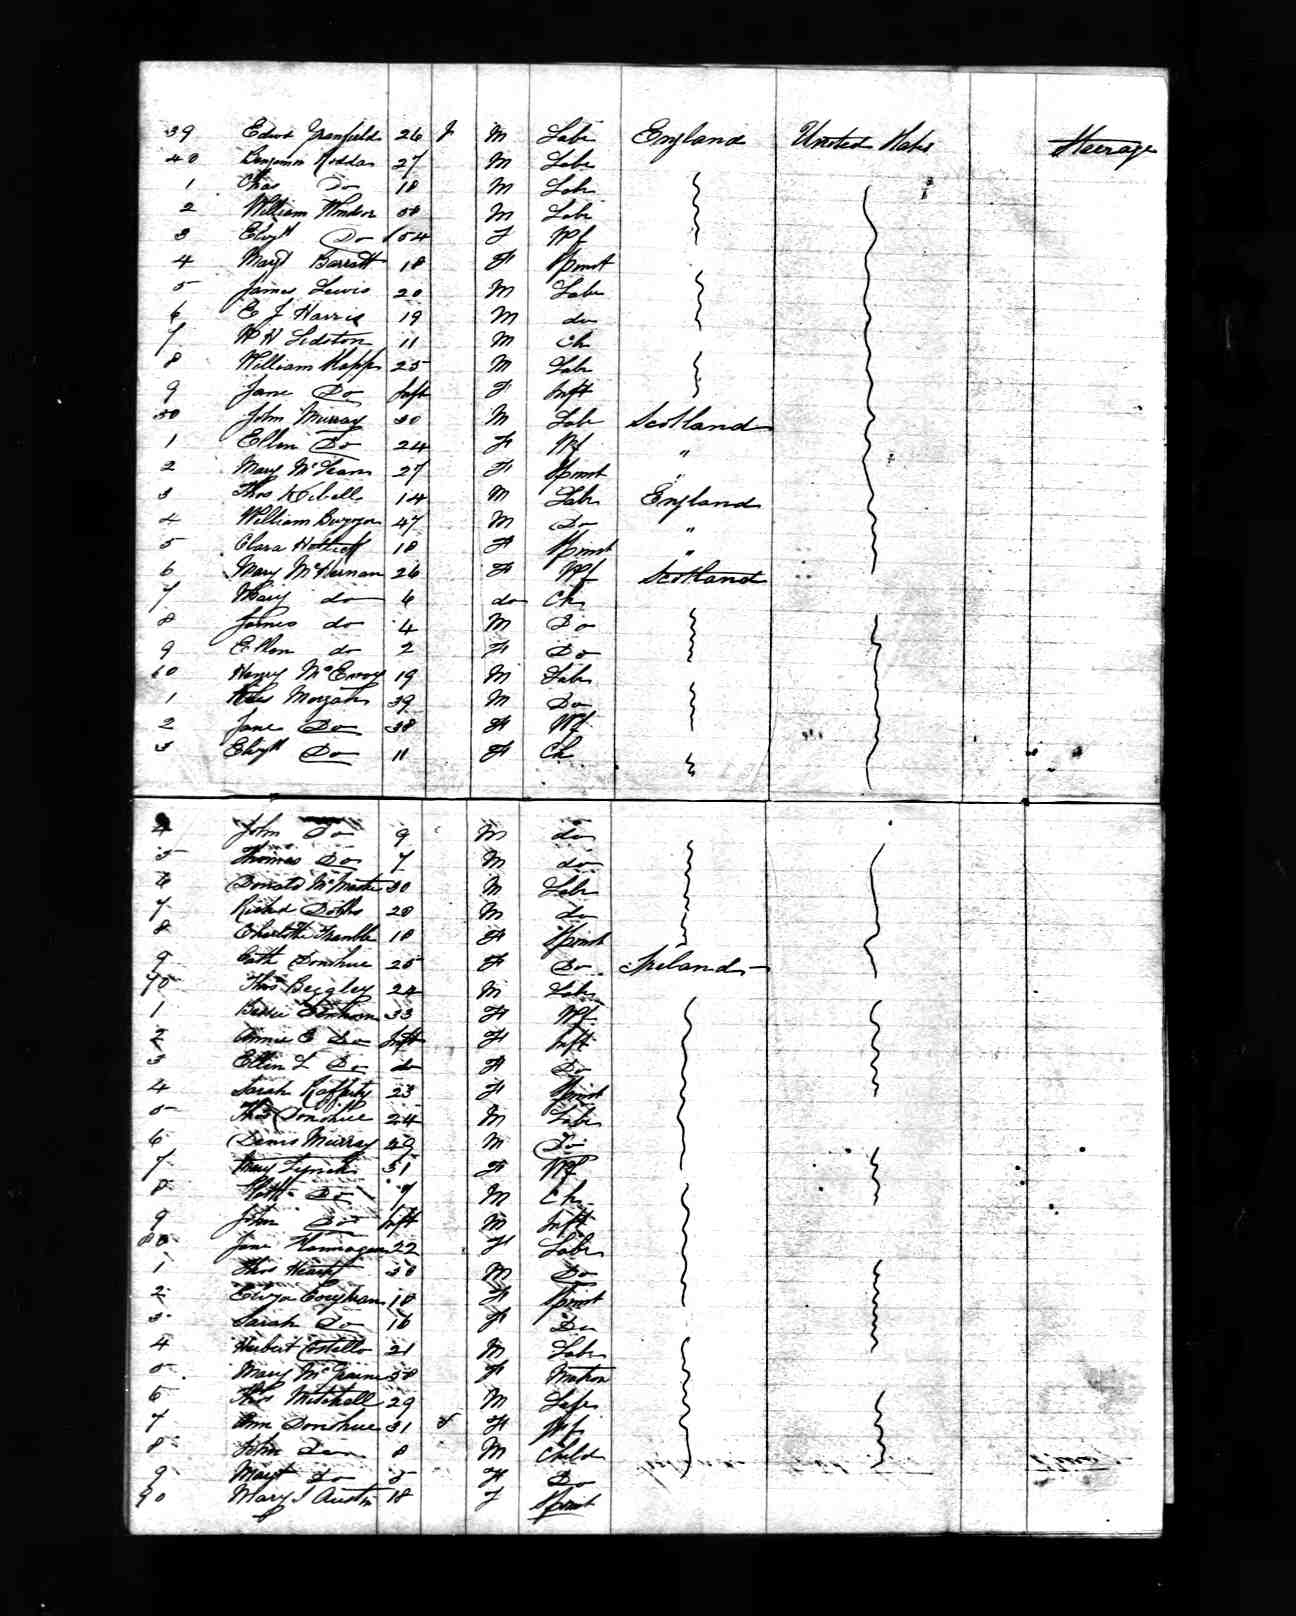 39 Edwd Granfield 26 M Labr England United States Steerage
40 Benjamin Roddas 27 M Labr
1 Chas Do 18 M Labr
2 William Window 58 M Labr
3 Elizth Do 54 F Wf
4 Mary Barratt 18 F Spinst
5 James Lewis 20 M Labr
6 E J Harris 19 M do
7 W H Lidston 11 M Ch
8 William 25 M Labr
9 Jane Do Inft F Inft
50 John Murray 30 M Labr Scotland
1 Ellen Do 24 F Wf "
2 Mary 27 F Spinst "
3 Thos 14 M Labr England
4 William 47 M Do "
5 Clara 18 F Spinst "
6 Mary McKernan 26 F Wf Scotland
7 Mary do 6 do Ch
8 James do 4 M Do
9 Ellen do 2 F Do
60 Henry McEnroy 19 M Labr
1 Morgan 39 M Do
2 Jane Do 38 F Wf
3 Elizth Do 11 F Ch
4 John Do 9 M do
5 Thomas Do 7 M do
6 Donald McMaster 30 M Labr
7 Richd Dobbs 20 M do
8 Charlotte Tramble 18 F Spinst
9 Cath Donohue 25 F Do Ireland
70 Thos Beggley 24 M Labr
1 Bessie 33 F Wf
2 Annie E Do Inft F Inft
3 Ellen L Do do F Do
4 Sarah Rafferty 23 F Spinst
5 Thos Donohue 24 M Labr
6 Denis Murray 49 M Do
7 Mary Lynch 31 F Wf
8 Do M Ch
9 John Do Inft M Inft
80 Jane Flannagan 22 F Labr
1 Thos 30 M Do
2 Eliza Coughlan 18 F Spinst
3 Sarah Do 16 F Do
4 Herbert Costello 21 M Labr
5 Mary 58 F Matron
6 Thos Mitchell 29 M Labr
7 Ann Donohue 31 F Wf
8 John Do 8 M Child
9 Margt Do 5 F Do
90 Mary J Austin 18 F Spinst